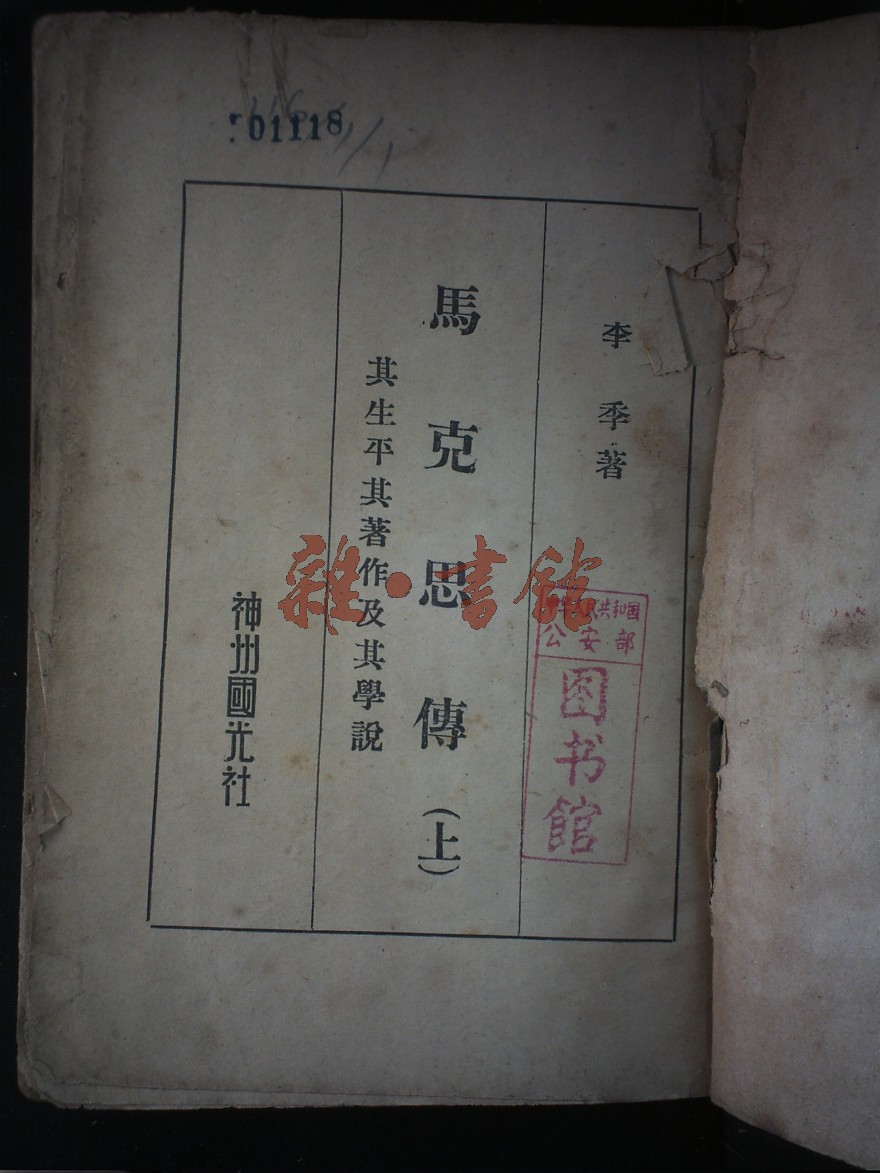 01118
李季著
馬克思傳(上)
其生平其著作及其學說
神州國光社
中华人民共和国
公安部
图书馆
雜·書館